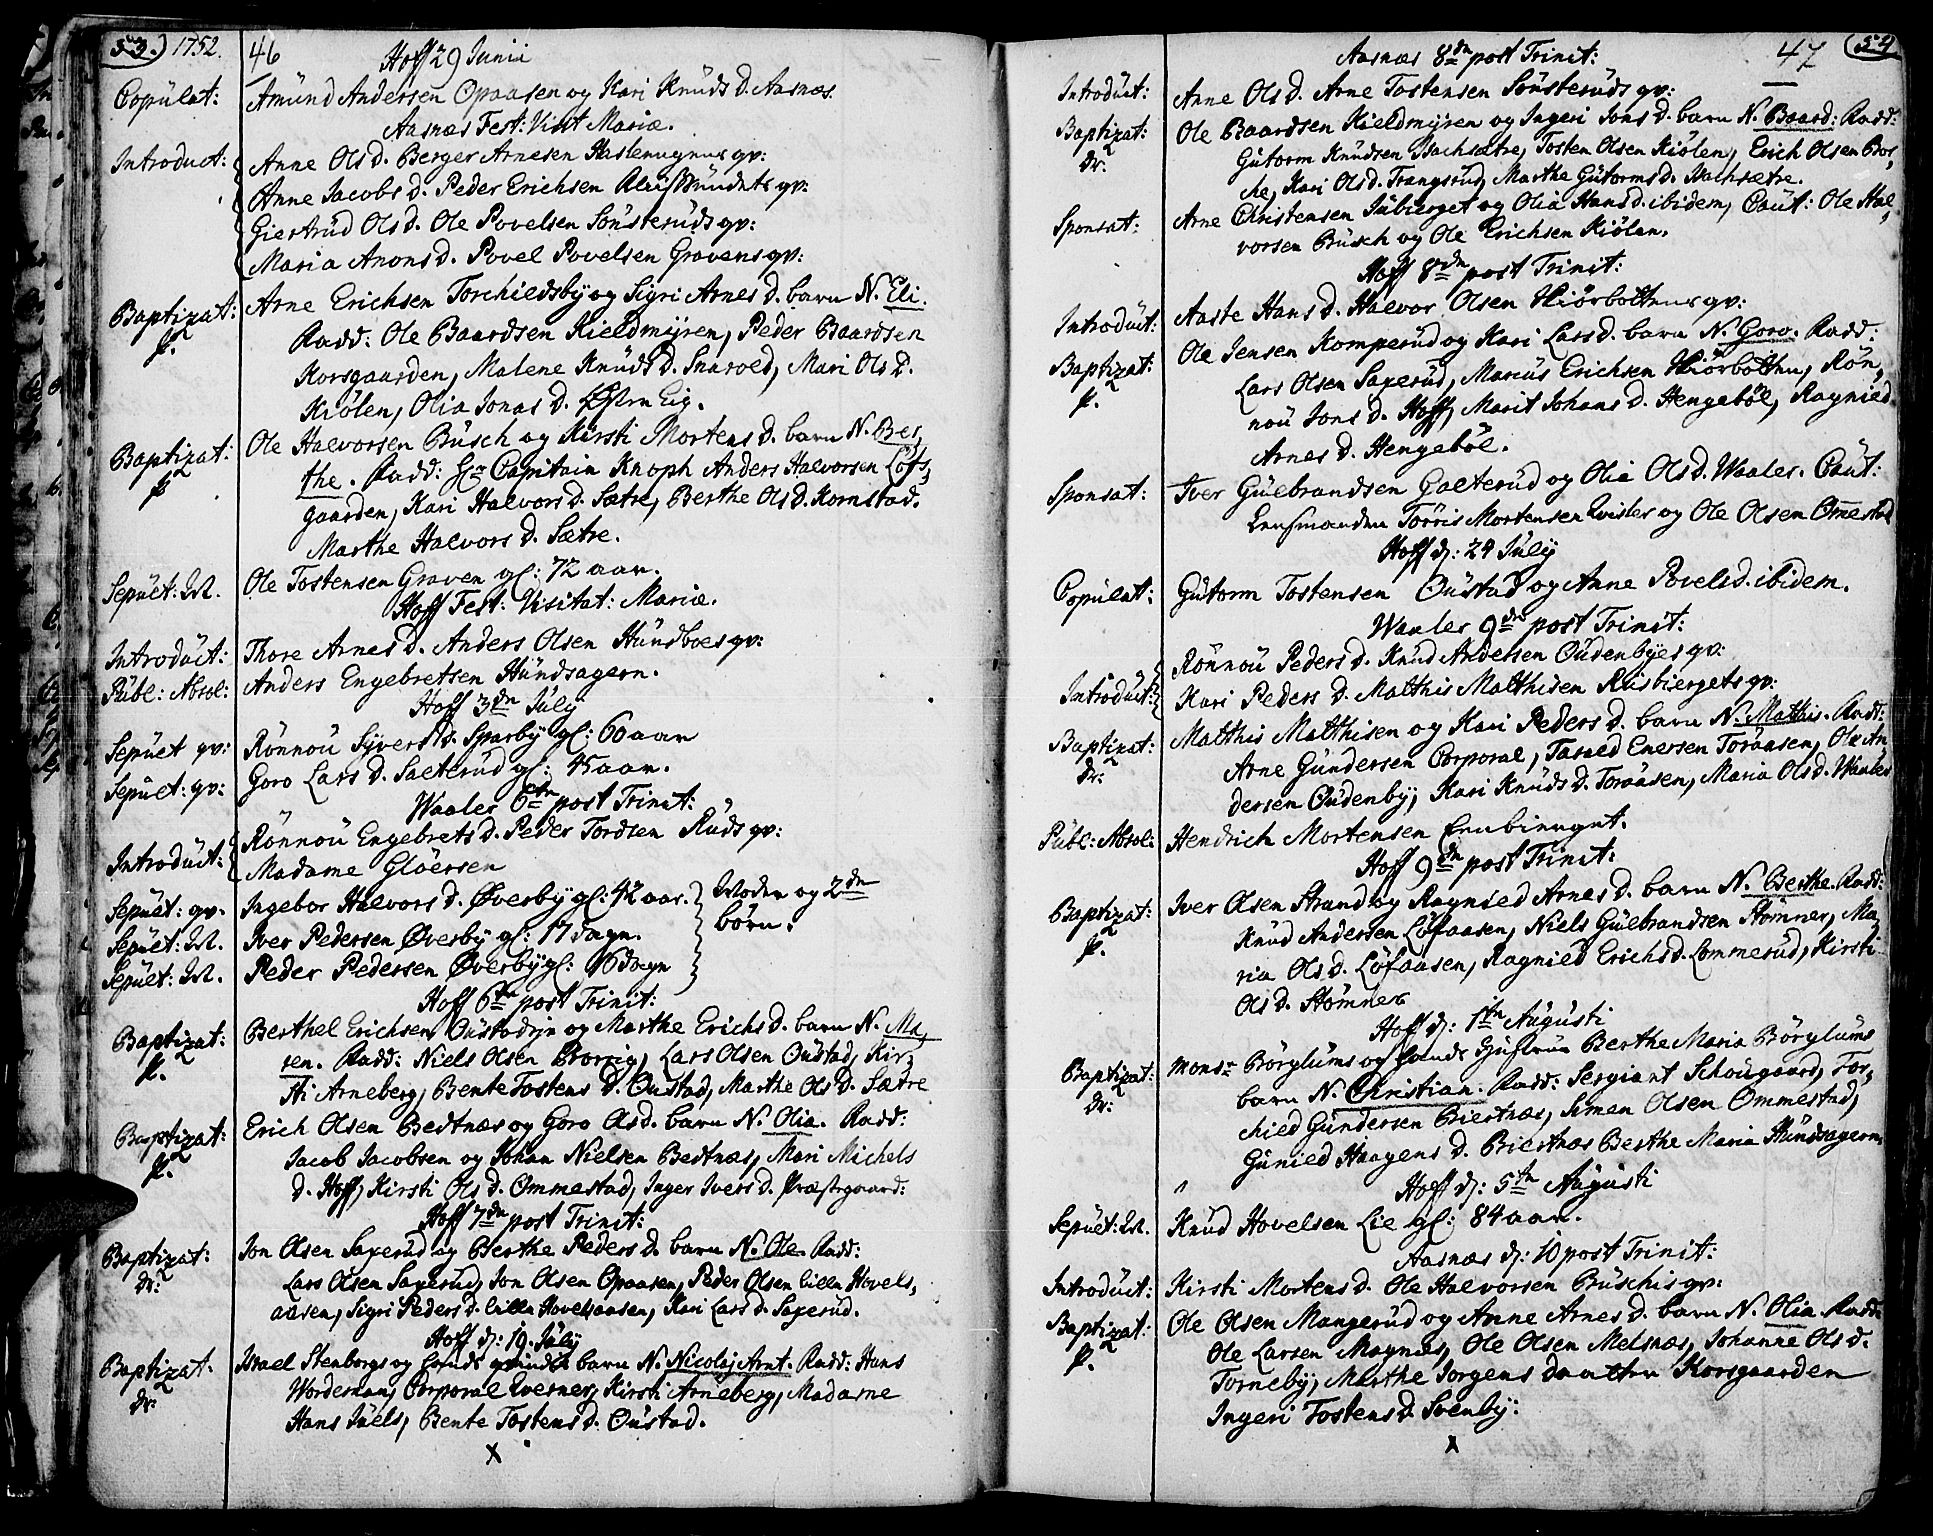 53. 1752. 46
Hoff 29 Junii
Copulat: Amund Andersen Opaasen og Kari Knuds D. Aasnæs.
Aasnæs Fest: Visit Mariæ.
Introduct: Anne Ols D. Berger Arnesen gv:
Anne Jacobs D. Peder Erichsen gv:
Giertrud Ols D. Ole Povelsen Sönsteruds gv:
Maria Amons D. Povel Povelsen Gravens gv:
Baptizat: Arne Erichsen Torchildsby og Sigri Arnes D. barn N. Eli.
p. Fadd: Ole Baardsen Kieldmyren, Peder Baardsen
Korsgaarden, Malene Knuds D. Snaroed, Mari Ols D.
Kiölen, Olia Jonas D. Østen Eig.
Baptizat: Ole Halvorsen Busch og Kirsti Mortens D. barn N. Ber,
p the. Fadd: Hr Capitain Knoph Anders Halvorsen Löfs,
gaarden, Kari Halvors D. Sætre, Berthe Ols D. Kornstad.
Marthe Halvors D. Sætre.
Sepult: M. Ole Tostensen Graven gl: 72 aar.
Hoff Fest: Visitat: Mariæ.
Introduct: Thore Arnes D. Anders Olsen Hundboes gv:
Publ: Absol: Anders Engebretsen Hundsagern.
Hoff 3dn July
Sepult gv: Rönnou Syvers D. Sparby gl: 60 aar
Sepult: gv: Goro Lars D. Sæterud gl: 45 aar.
Waaler 6tn post Trinit:
Introduct: Rönnou Engebrets D. Peder Tordsen Ruds gv:
Madame Glöersen
Sepult: gv. Ingebor Halvors D. Øverby gl: 42 aar. Moder og 2dn
Sepult: M. Iver Pedersen Øverby gl: 17 dagn. börn.
Sepult: M. Peder Pedersen Øverby gl: 16 dagn
Hoff 6tn post Trinit:
Baptizat: Berthel Erichsen Oustadeje og Marthe Erichs D. barn N. Ma,
p. ren. Fadd: Niels Olsen Borrig, Lars Olsen Oustad, Kir,
sti Arneberg, Bente Tostens D. Oustad, Marthe Ols D. Sætre
Baptizat: Erich Olsen Bedtnæs og Goro Ols D. barn N. Olia. Fadd:
p. Jacob Jacobsen og Johan Nielsen Bedtnæs, Mari Michels
D. Hoff, Kirsti Ols D. Ommestad, Inger Ivers D. Præstegaard:
Hoff 7dn post Trinit:
Baptizat: Jon Olsen Saxerud og Berthe Peders D. barn N. Ole Fadd:
dr: Lars Olsen Saxerud, Jon Olsen Opaasen, Peder Olsen lille Hovels,
aasen, Sigri Peders D. lille Hovelsaasen, Kari Lars D. Saxerud.
Hoff d: 19. July
Baptizat: Israel Stenborgs og barn N. Nicolaj Arnt. Fadd: Hans
dr: Wordeman, Corporal Qverner, Kirsti Arneberg, Madame
Hans Juels, Bente Tostens D. Oustad.
X
47 54
Aasnæs 8dn post Trinit:
Introduct: Anne Ols D. Arne Tostensen Sönsteruds gv:
Baptizat: Ole Baardsen Kieldmyren og Ingeri Jons D. barn N. Baard: Fadd:
dr: Gutorm Knudsen Wachsætre, Tosten Olsen Kiölen, Erich Olsen Bos,
che, Kari Ols D. Trangsrud, Marthe Gutorms D. Wachsætre.
Sponsat: Arne Christensen Julsierget og Olia Hans D. ibidem, Caut: Ole Hal,
vorsen Busch og Ole Erichsen Kiölen.
Hoff 8dn post Trinit:
Introduct: Aaste Hans D. Halvor Olsen Kiörbottens gv:
Baptizat: Ole Jensen Komperud og Kari Lars D. barn N. Goro. Fadd:
p. Lars Olsen Saxerud, Marcus Erichsen Kiörbotten, Rön,
nou Jons D. Hoff, Marit Johans D. Hengeböl, Ragnild
Arnes D. Hengeböl.
Sponsat: Iver Gulbrandsen Galterud og Olia Ols D. Waaler. Caut:
Lensmanden Torris Mortensen Qvisler og Ole Olsen Omestad
Hoff d: 24 July
Copulat: Gutorm Tostensen Oustad og Anne Povels D. ibidem.
Waaler 9dn post Trinit:
Introduct: Rönnou Peders D. Knud Andersen Oudenbyes gv:
Kari Peders D. Matthis Matthisen Riisbiergets gv:
Baptizat: Matthis Matthisen og Kari Peders D. barn N. Mathis. Fadd:
dr: Arne Gundersen Corporal, Tarald Enersen Toraasen, Ole An
dersen Oudenby, Kari Knuds D. Toraasen, Maria Ols D. Waaler
Publ: Absol: Hendrich Mortensen
Hoff 9dn post Trinit:
Baptizat: Iver Olsen Strand og Ragnild Arnes D. barn N. Berthe. Fadd:
p. Knud Andersen Löfaasen, Niels Gulbrandsen Stömner, Ma,
ria Ols D. Löfaasen, Ragnild Erichs D. Lommerud, Kirsti
Ols D. Stömner
Hoff d: 1tn Augusti
Baptizat: Monsr Börglums og hands Hustrue Berthe Maria Börglums
dr: barn N. Christian. Fadd: Sergiant Schougaard, Tor,
child Gundersen Biertnæs, Simen Olsen Ommestad,
Gunild Haagens D. Biertnæs Berthe Maria Hundsagern,
Hoff d: 5tn Augusti
Sepult: M. Knud Hovelsen Lie gl: 84 aar.
Aasnæs d: 10 post Trinit:
Introduct: Kirsti Mortens D. Ole Halvorsen Buschis gv:
Baptizat: Ole Olsen Mangerud og Anne Arnes D. barn N. Olia Fadd:
p. Ole Larsen Magnæs, Ole Olsen Melsnæs, Johanne Ols D.
Torneby, Marthe Jorgens daatter Korsgaarden
Ingeri Tostens D. Svenby:
X